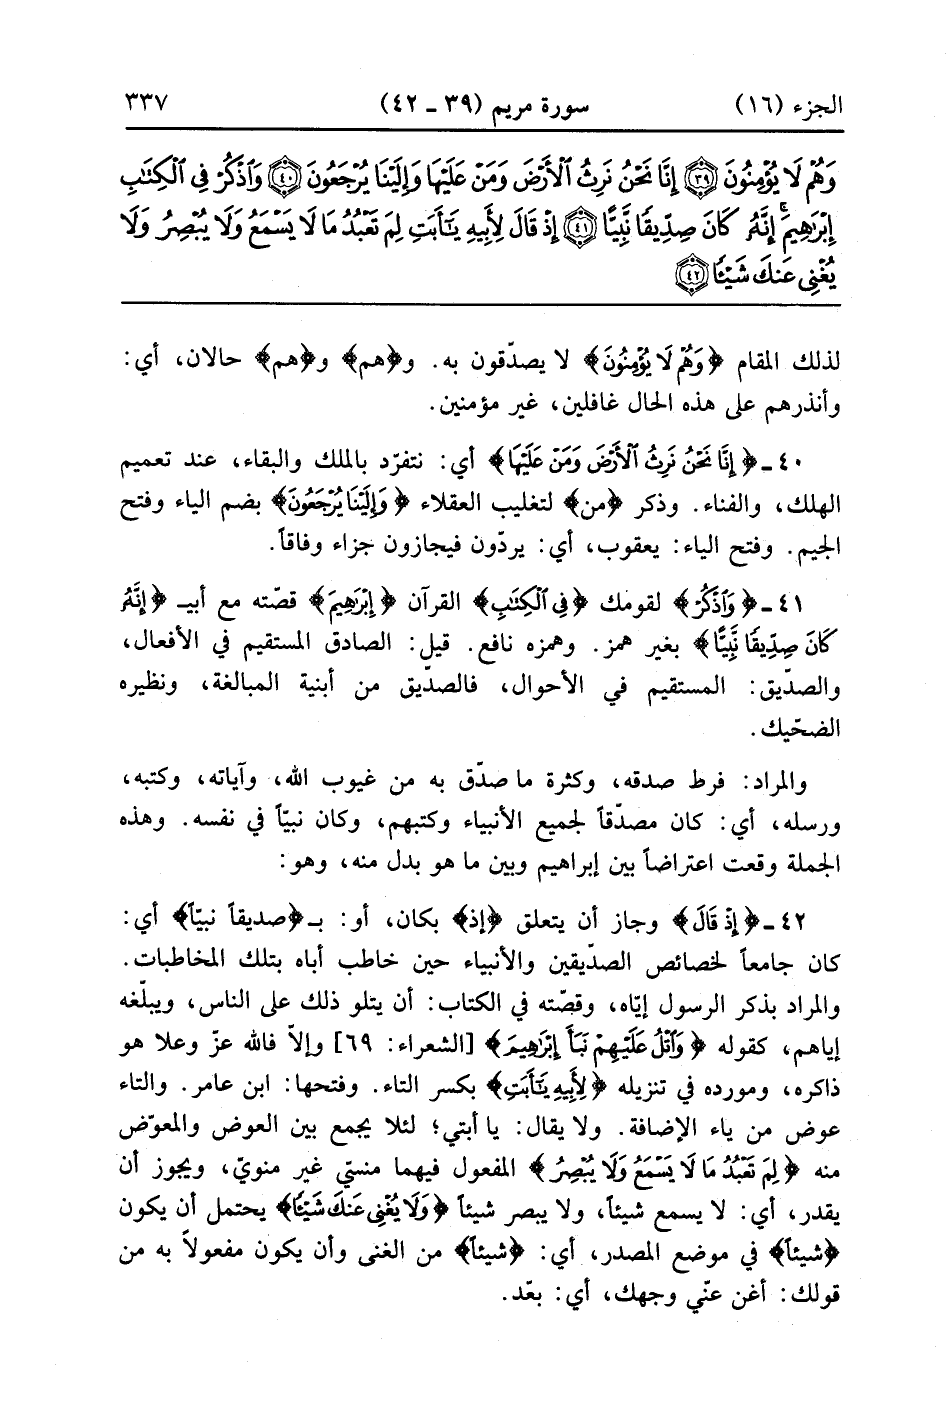 الجزء (١٦) سورة مريم (٣٩ ـ ٤٢) ٣٣٧
وَهُمْ لَا يُؤْمِنُونَ ﴿٣٩﴾ إِنَّا نَحْنُ نَرِثُ ٱلْأَرْضَ وَمَنْ عَلَيْهَا وَإِلَيْنَا يُرْجَعُونَ ﴿٤٠﴾ وَٱذْكُرْ فِى ٱلْكِتَٰبِ
إِبْرَٰهِيمَ ۚ إِنَّهُۥ كَانَ صِدِّيقًا نَّبِيًّا ﴿٤١﴾ إِذْ قَالَ لِأَبِيهِ يَٰٓأَبَتِ لِمَ تَعْبُدُ مَا لَا يَسْمَعُ وَلَا يُبْصِرُ وَلَا
يُغْنِى عَنكَ شَيْـًٔا ﴿٤٢﴾
لذلك المقام ﴿وَهُمْ لَا يُؤْمِنُونَ﴾ لا يصدّقون به. و﴿هم﴾ و﴿هم﴾ حالان، أي:
وأنذرهم على هذه الحال غافلين، غير مؤمنين.
٤٠ ـ ﴿إِنَّا نَحْنُ نَرِثُ ٱلْأَرْضَ وَمَنْ عَلَيْهَا﴾ أي: نتفرّد بالملك والبقاء، عند تعميم
الهلك، والفناء. وذكر ﴿من﴾ لتغليب العقلاء ﴿وَإِلَيْنَا يُرْجَعُونَ﴾ بضم الياء وفتح
الجيم. وفتح الياء: يعقوب، أي: يردّون فيجازون جزاء وفاقاً.
٤١ ـ ﴿وَٱذْكُرْ﴾ لقومك ﴿فِى ٱلْكِتَٰبِ﴾ القرآن ﴿إِبْرَٰهِيمَ﴾ قصّته مع أبيـ ﴿إِنَّهُۥ
كَانَ صِدِّيقًا نَّبِيًّا﴾ بغير همز. وهمزه نافع. قيل: الصادق المستقيم في الأفعال،
والصدّيق: المستقيم في الأحوال، فالصدّيق من أبنية المبالغة، ونظيره
الضحّيك.
والمراد: فرط صدقه، وكثرة ما صدّق به من غيوب الله، وآياته، وكتبه،
ورسله، أي: كان مصدّقاً لجميع الأنبياء وكتبهم، وكان نبيّاً في نفسه. وهذه
الجملة وقعت اعتراضاً بين إبراهيم وبين ما هو بدل منه، وهو:
٤٢ ـ ﴿إِذْ قَالَ﴾ وجاز أن يتعلق ﴿إذ﴾ بكان، أو: بـ ﴿صديقاً نبيّاً﴾ أي:
كان جامعاً لخصائص الصدّيقين والأنبياء حين خاطب أباه بتلك المخاطبات.
والمراد بذكر الرسول إيّاه، وقصّته في الكتاب: أن يتلو ذلك على الناس، ويبلّغه
إياهم، كقوله ﴿وَٱتْلُ عَلَيْهِمْ نَبَأَ إِبْرَٰهِيمَ﴾ [الشعراء: ٦٩] وإلاّ فالله عزّ وعلا هو
ذاكره، ومورده في تنزيله ﴿لِأَبِيهِ يَٰٓأَبَتِ﴾ بكسر التاء. وفتحها: ابن عامر. والتاء
عوض من ياء الإضافة. ولا يقال: يا أبتي؛ لئلا يجمع بين العوض والمعوّض
منه ﴿لِمَ تَعْبُدُ مَا لَا يَسْمَعُ وَلَا يُبْصِرُ﴾ المفعول فيهما منسيّ غير منويّ، ويجوز أن
يقدر، أي: لا يسمع شيئاً، ولا يبصر شيئاً ﴿وَلَا يُغْنِى عَنكَ شَيْـًٔا﴾ يحتمل أن يكون
﴿شيئاً﴾ في موضع المصدر، أي: ﴿شيئاً﴾ من الغنى وأن يكون مفعولاً به من
قولك: أغن عنّي وجهك، أي: بعّد.